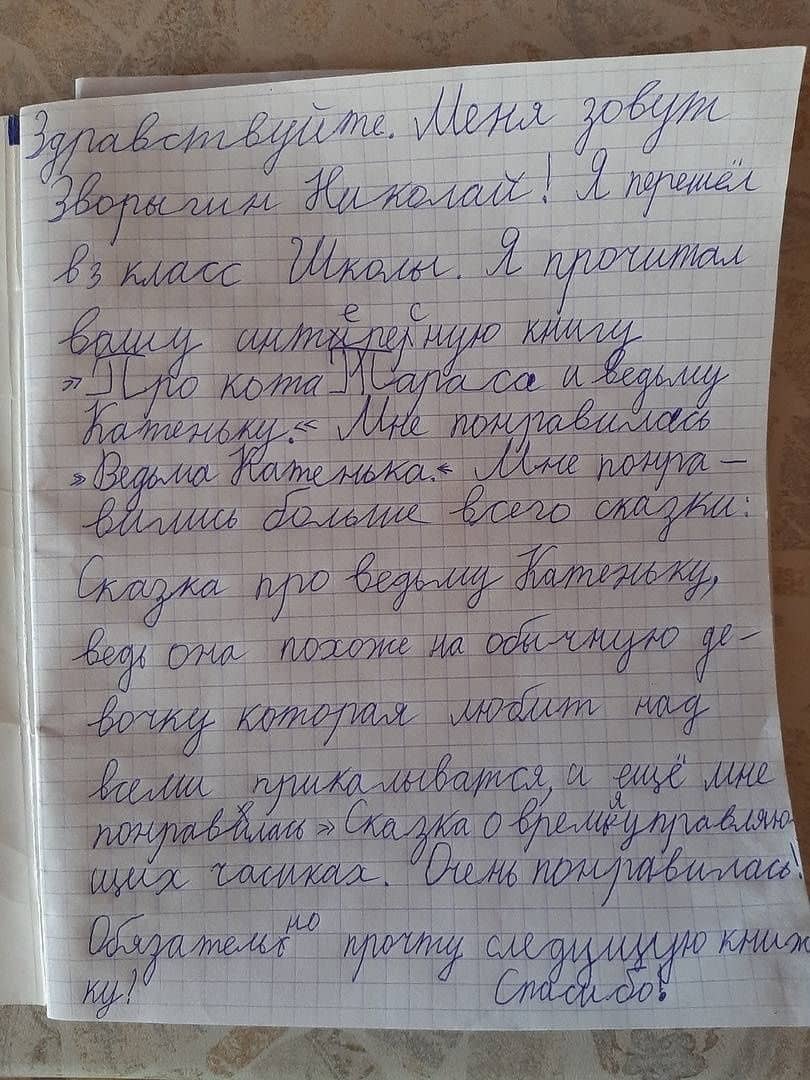 Здравствуйте. Меня зовут
Зворыгин Николай! Я перешёл
в 3 класс Школы. Я прочитал
вашу интересную книгу
»Про кота Тараса и ведьму
Катеньку.« Мне понравилась
»Ведьма Катенька.« Мне понра-
вились больше всего сказки:
Сказка про ведьму Катеньку,
ведь она похоже на обычную де-
вочку которая любит над
всеми прикалыватся, а ещё мне
понравилась »Сказка о времяуправляю-
щих часиках. Очень понравилась!
Обязательно прочту следущую книж
ку! Спасибо!